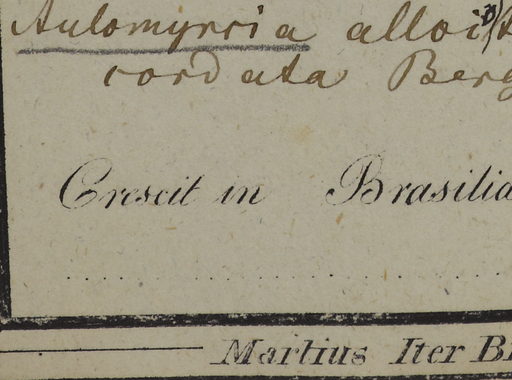 Aulomyrcia alloiot
cordata Berg
Crescit in Brasilia
Martius Iter B